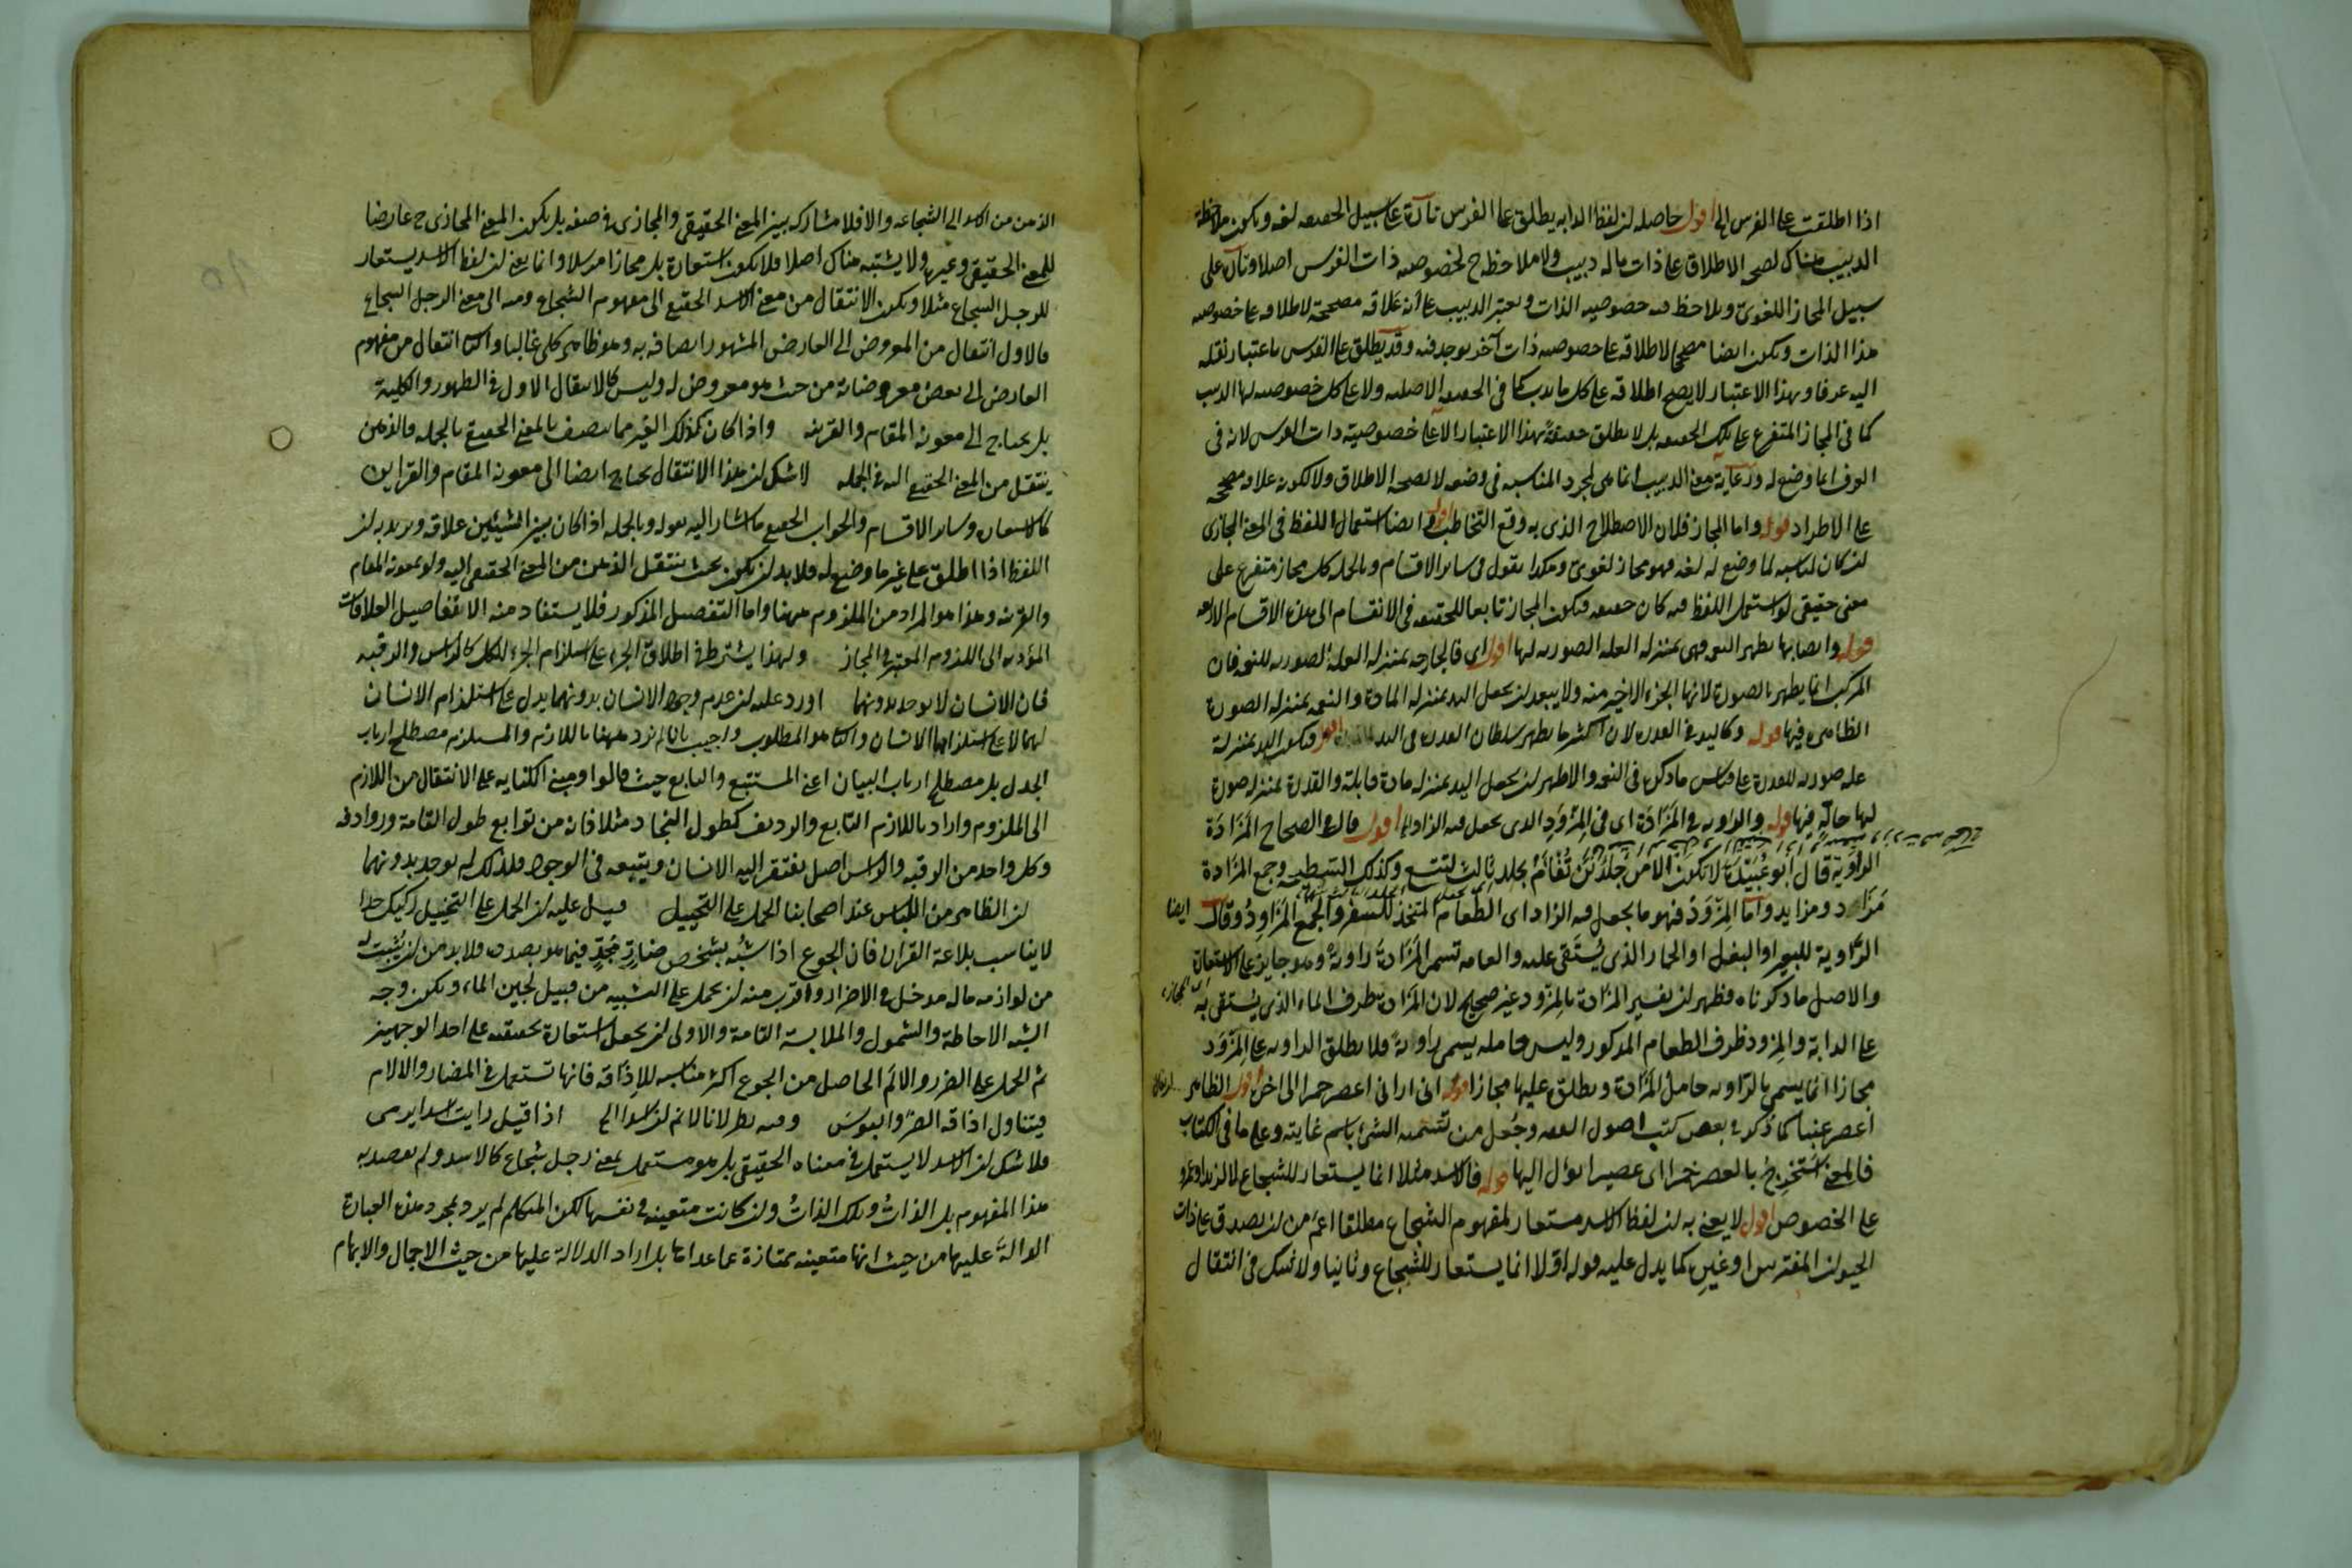 اذا اطلقت على الفرس الى اقول حاصله ان لفظ الدابه يطلق على الفرس تارة على سبيل الحقيقه لغه ويكون ملاحظة
الدبيب هناك لصحه الاطلاق على ذات ماله دبيب ولا ملاحظة ح لخصوصيه ذات الفرس اصلا وتارة على
سبيل المجاز اللغوى ويلاحظ فيه خصوصيه الذات ويعتبر الدبيب على أنه علاقه مصححة لاطلاقه على خصوصيه
هذا الذات ويكون ايضا مصححا لاطلاقه على خصوصيه ذات آخر يوجد فيه وقد يطلق على الفرس باعتبار نقله
اليه عرفا وبهذا الاعتبار لا يصح اطلاقه على كل ما يدب كما فى الحقيقه الاصليه ولا على كل خصوصيه لها الدبيب
كما فى المجاز المتفرع على تلك الحقيقه بل لا يطلق حقيقة بهذا الاعتبار الا على خصوصية ذات الفرس لانه فى
العرف انما وضع له ورعاية معنى الدبيب انما هى لمجرد المناسبه فى وضعه لا لصحه الاطلاق ولا لكونه علاقه مصححه
على الاطراد قوله واما المجاز فلان الاصطلاح الذى به وقع التخاطب اقول ايضا استعمال اللفظ فى المعنى المجازى
ان كان لمناسبه لما وضع له لغه فهو مجاز لغوى وهكذا نقول فى ساير الاقسام وبالجمله كل مجاز متفرع على
معنى حقيقى لو استعمل اللفظ فيه كان حقيقه فيكون المجاز تابعا للحقيقه فى الانقسام الى هذه الاقسام الاربعه
قوله وايضا بها يظهر النعمه فهى بمنزله العله الصوريه لها اقول اى فالجارحه بمنزله العله الصوريه للنعمه فان
المركب انما يظهر بالصورة لانها الجزء الاخير منه ولا يبعد ان يجعل اليد بمنزله المادة والنعمه بمنزله الصورة
الظاهره فيها قوله وكاليد فى القدره لان اكثر ما يظهر سلطان القدره فى اليد اقول فيكون اليد بمنزلة
عله صوريه للقدرة على قياس ما ذكر فى النعمه والاظهر ان يجعل اليد بمنزله مادة قابلة والقدرة بمنزله صورة
لها حالّة فيها قوله والراويه فى المَزَادَة اى فى المِزْوَدِ الذى يجعل فيه الزاد الى اقول قال فى الصحاح المَزَادَة
الراوية قال أبو عُبَيْدَة لا تكون الا من جلدين تُفْأَم بجلد ثالث لتتسع وكذلك السَّطيحه وجمع المزادة
مَزَاد ومزايد واما المِزْوَدُ فهو ما يجعل فيه الزاد اى الطعام المتخذ للسفر والجمع المَزَاوِدُ وقال ايضا
الرَّاوية للبعير او البغل او الحمار الذى يُسْتَقى عليه والعامه تسمى المَزَادة راوية وهو جايز على الاستعارة
والاصل ما ذكرناه فظهر ان تفسير المزادة بالمزود غير صحيح لان المزادة ظرف الماء الذى يستقى به
على الدابة والمزود ظرف الطعام المذكور وليس حامله يسمى راوية فلا يطلق الراويه على المِزْوَد
مجازا انما يسمى بالرّاويه حامل المزادة ويطلق عليها مجازا قوله انى ارانى اعصر خمرا الى اخره اقول الظاهر
اعصر عنبا كما ذكر فى بعض كتب اصول الفقه وجُعل من تسميه الشئ باسم غايته وعلى ما فى الكتاب
فالمعنى استخرج بالعصر خمرا اى عصيرا يؤل اليها قوله فالاسد مثلا انما يستعار للشجاع لا لزيد او عمرو
على الخصوص اقول لا يعنى به ان لفظ الاسد مستعار لمفهوم الشجاع مطلقا اعم من ان يصدق على ذات
الحيوان المفترس او غيره كما يدل عليه قوله اولا انما يستعار للشجاع وثانيا ولا شك فى انتقال
الذهن من الاسد الى الشجاعه والا فلا مشاركه بين المعنى الحقيقى والمجازى فى صفه بل يكون المعنى المجازى ح عارضا
للمعنى الحقيقى وغيره ولا يشتبه هناك اصلا فلا يكون استعارة بل مجازا مرسلا وانما يعنى ان لفظ الاسد يستعار
للرجل الشجاع مثلا ويكون الانتقال من معنى الاسد الحقيقى الى مفهوم الشجاع ومنه الى معنى الرجل الشجاع
فالاول انتقال من المعروض الى العارض المشهور اتصافه به وهو ظاهر كلى غالبا والثانى انتقال من مفهوم
العارض الى بعض معروضاته من حيث هو معروض له وليس كالانتقال الاول فى الظهور والكلية
بل يحتاج الى معونه المقام والقرينه واذا كان كذلك الغير مما يتصف بالمعنى الحقيقى بالجمله فالذهن
ينتقل من المعنى الحقيقى اليه فى الجمله لا شك ان هذا الانتقال يحتاج ايضا الى معونه المقام والقراين
كالاستعاره وساير الاقسام والجواب الحقيقى ما اشار اليه بقوله وبالجمله اذا كان بين الشيئين علاقه ويريد به ان
اللفظ اذا اطلق على غير ما وضع له فلا بد ان يكون بحيث ينتقل الذهن من المعنى الحقيقى اليه ولو بمعونة المقام
والقرينه وهذا هو المراد من الملزوم ههنا واما التفصيل المذكور فلا يستفاد منه الا تفاصيل العلاقات
المؤديه الى اللزوم المعتبر فى المجاز ولهذا يشترط فى اطلاق الجزء على استلزام الجزء للكل كالراس والرقبه
فان الانسان لا يوجد بدونهما اورد عليه ان عدم وجود الانسان بدونهما يدل على استلزام الانسان
لهما لا على استلزامهما الانسان والثانى هو المطلوب واجيب بانا لم نرد ههنا باللازم والمستلزم مصطلح ارباب
الجدل بل مصطلح ارباب البيان اعنى المستتبع والتابع حيث قالوا ومبنى الكنايه على الانتقال من اللازم
الى الملزوم واراد باللازم التابع والرديف كطول النجاد مثلا فانه من توابع طول القامة وروادفه
وكل واحد من الرقبه والراس اصل يفتقر اليه الانسان ويتبعه فى الوجود فلذلك لم يوجد بدونهما
ان الظاهر من اللباس عند اصحابنا الحمل على التخييل قيل عليه ان الحمل على التخييل ركيك جدا
لا يناسب بلاغة القران فان الجوع اذا شُبّه بشخص ضارٍ مُجِدٍّ فيما هو بصدده فلا بد من ان يُثْبت له
من لوازمه ماله مدخل فى الاضرار واقرب منه ان يحمل على التشبيه من قبيل لجين الماء ويكون وجه
الشبه الاحاطة والشمول والملابسة التامة والاولى ان يجعل استعارة تحقيقيه على احد الوجهين
ثم الحمل على الضرر والالم الحاصل من الجوع اكثر مناسبه للاذاقه فانها تستعمل فى المضار والآلام
فيتناول اذاقه الضر والبوس وفيه نظر لانا لا نم ان اسدا الخ اذا قيل رايت اسدا يرمى
فلا شك ان الاسد لا يستعمل فى معناه الحقيقى بل هو مستعمل بمعنى رجل شجاع كالاسد ولم نقصد به
هذا المفهوم بل الذات وتلك الذات وان كانت متعينه فى نفسها لكن المتكلم لم يرد بمجرد هذه العبارة
الدالة عليها من حيث انها متعينه ممتازة عما عداها بل اراد الدلالة عليها من حيث الاجمال والابهام